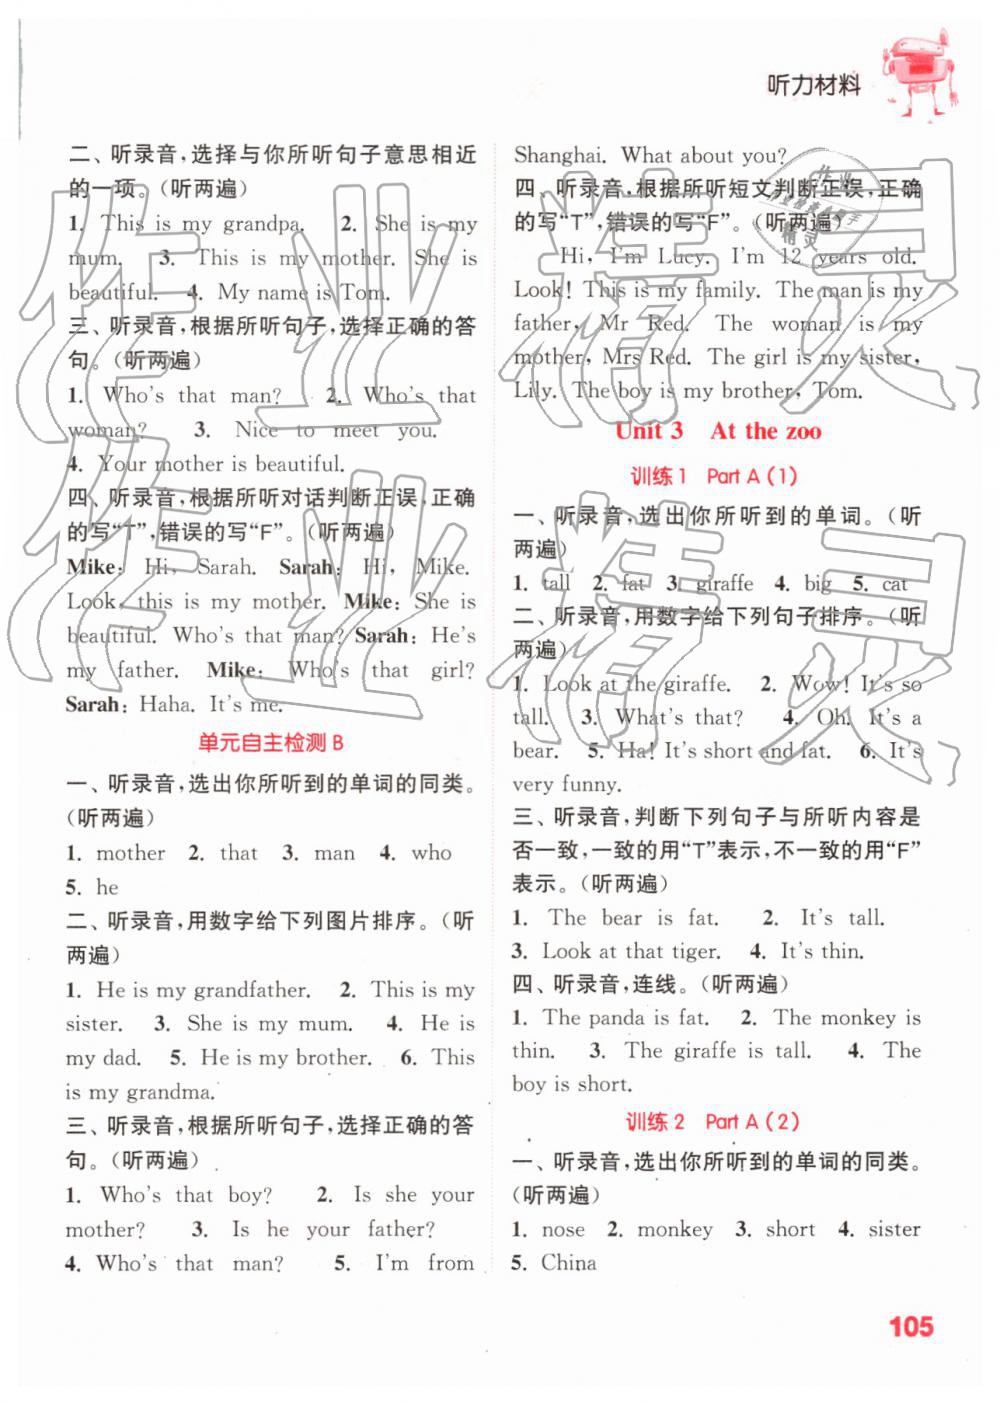 听力材料
二、听录音,选择与你所听句子意思相近
的一项。(听两遍)
1. This is my grandpa. 2. She is my
mum. 3. This is my mother. She is
beautiful. 4. My name is Tom.
三、听录音,根据所听句子,选择正确的答
句。(听两遍)
1. Who's that man? 2. Who's that
woman? 3. Nice to meet you.
4. Your mother is beautiful.
四、听录音,根据所听对话判断正误,正确
的写“T”,错误的写“F”。(听两遍)
Mike: Hi, Sarah. Sarah: Hi, Mike.
Look, this is my mother. Mike: She is
beautiful. Who's that man? Sarah: He's
my father. Mike: Who's that girl?
Sarah: Haha. It's me.
单元自主检测 B
一、听录音,选出你所听到的单词的同类。
(听两遍)
1. mother 2. that 3. man 4. who
5. he
二、听录音,用数字给下列图片排序。(听
两遍)
1. He is my grandfather. 2. This is my
sister. 3. She is my mum. 4. He is
my dad. 5. He is my brother. 6. This
is my grandma.
三、听录音,根据所听句子,选择正确的答
句。(听两遍)
1. Who's that boy? 2. Is she your
mother? 3. Is he your father?
4. Who's that man? 5. I'm from
Shanghai. What about you?
四、听录音,根据所听短文判断正误,正确
的写“T”,错误的写“F”。(听两遍)
Hi, I'm Lucy. I'm 12 years old.
Look! This is my family. The man is my
father, Mr Red. The woman is my
mother, Mrs Red. The girl is my sister,
Lily. The boy is my brother, Tom.
Unit 3 At the zoo
训练1 Part A (1)
一、听录音,选出你所听到的单词。(听
两遍)
1. tall 2. fat 3. giraffe 4. big 5. cat
二、听录音,用数字给下列句子排序。(听
两遍)
1. Look at the giraffe. 2. Wow! It's so
tall. 3. What's that? 4. Oh. It's a
bear. 5. Ha! It's short and fat. 6. It's
very funny.
三、听录音,判断下列句子与所听内容是
否一致,一致的用“T”表示,不一致的用“F”
表示。(听两遍)
1. The bear is fat. 2. It's tall.
3. Look at that tiger. 4. It's thin.
四、听录音,连线。(听两遍)
1. The panda is fat. 2. The monkey is
thin. 3. The giraffe is tall. 4. The
boy is short.
训练2 Part A (2)
一、听录音,选出你所听到的单词的同类。
(听两遍)
1. nose 2. monkey 3. short 4. sister
5. China
105
作业精灵
作业精灵